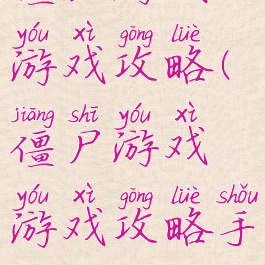 yóu xì gōng lüè
游戏攻略(
jiāng shī yóu xì
僵尸游戏
yóu xì gōng lüè shǒu
游戏攻略手